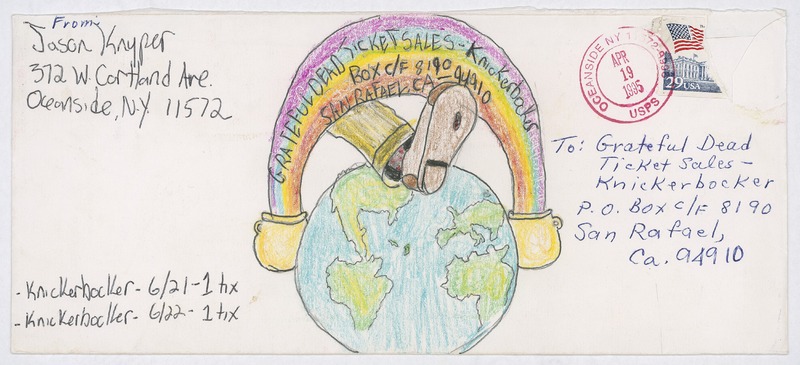 From,
Jason Knyper
372 W. Cortland Ave.
Oceanside, N.Y. 11572
GRATEFUL DEAD TICKET SALES - Knickerbocker
BOX C/F 8190
SAN RAFAEL, CA - 94910
OCEANSIDE NY 11572
APR
19
1995
USPS
29 USA
To: Grateful Dead
Ticket Sales -
Knickerbocker
P.O. Box C/F 8190
San Rafael,
Ca. 94910
- Knickerbocker - 6/21 - 1 tix
- Knickerbocker - 6/22 - 1 tix